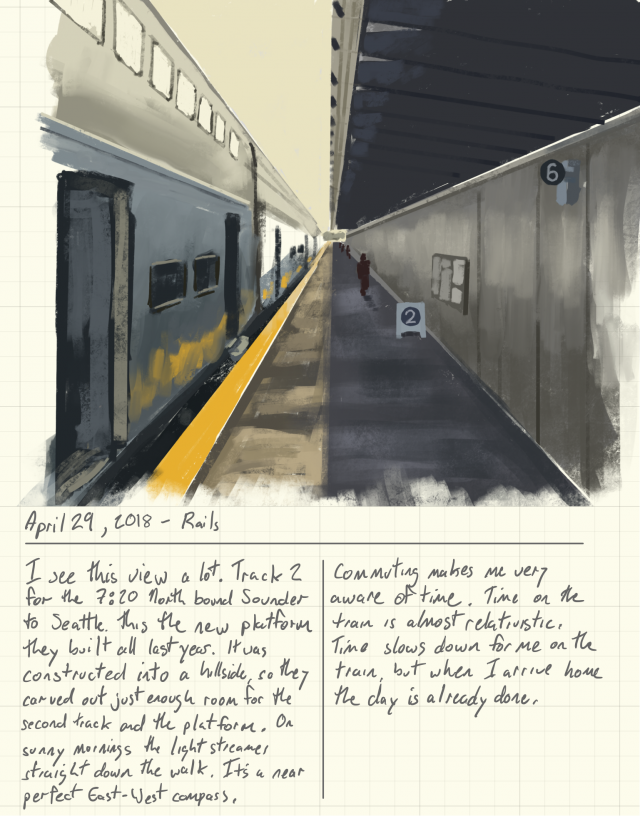 6
2
April 29, 2018 - Rails
I see this view a lot. Track 2
for the 7:20 North bound Sounder
to Seattle. this the new platform
they built all last year. It was
constructed into a hillside, so they
carved out just enough room for the
second track and the platform. On
sunny mornings the light streamer
straight down the walk. It's a near
perfect East-West compass.
Commuting makes me very
aware of time. Time on the
train is almost relativistic.
Time slows down for me on the
train, but when I arrive home
the day is already done.